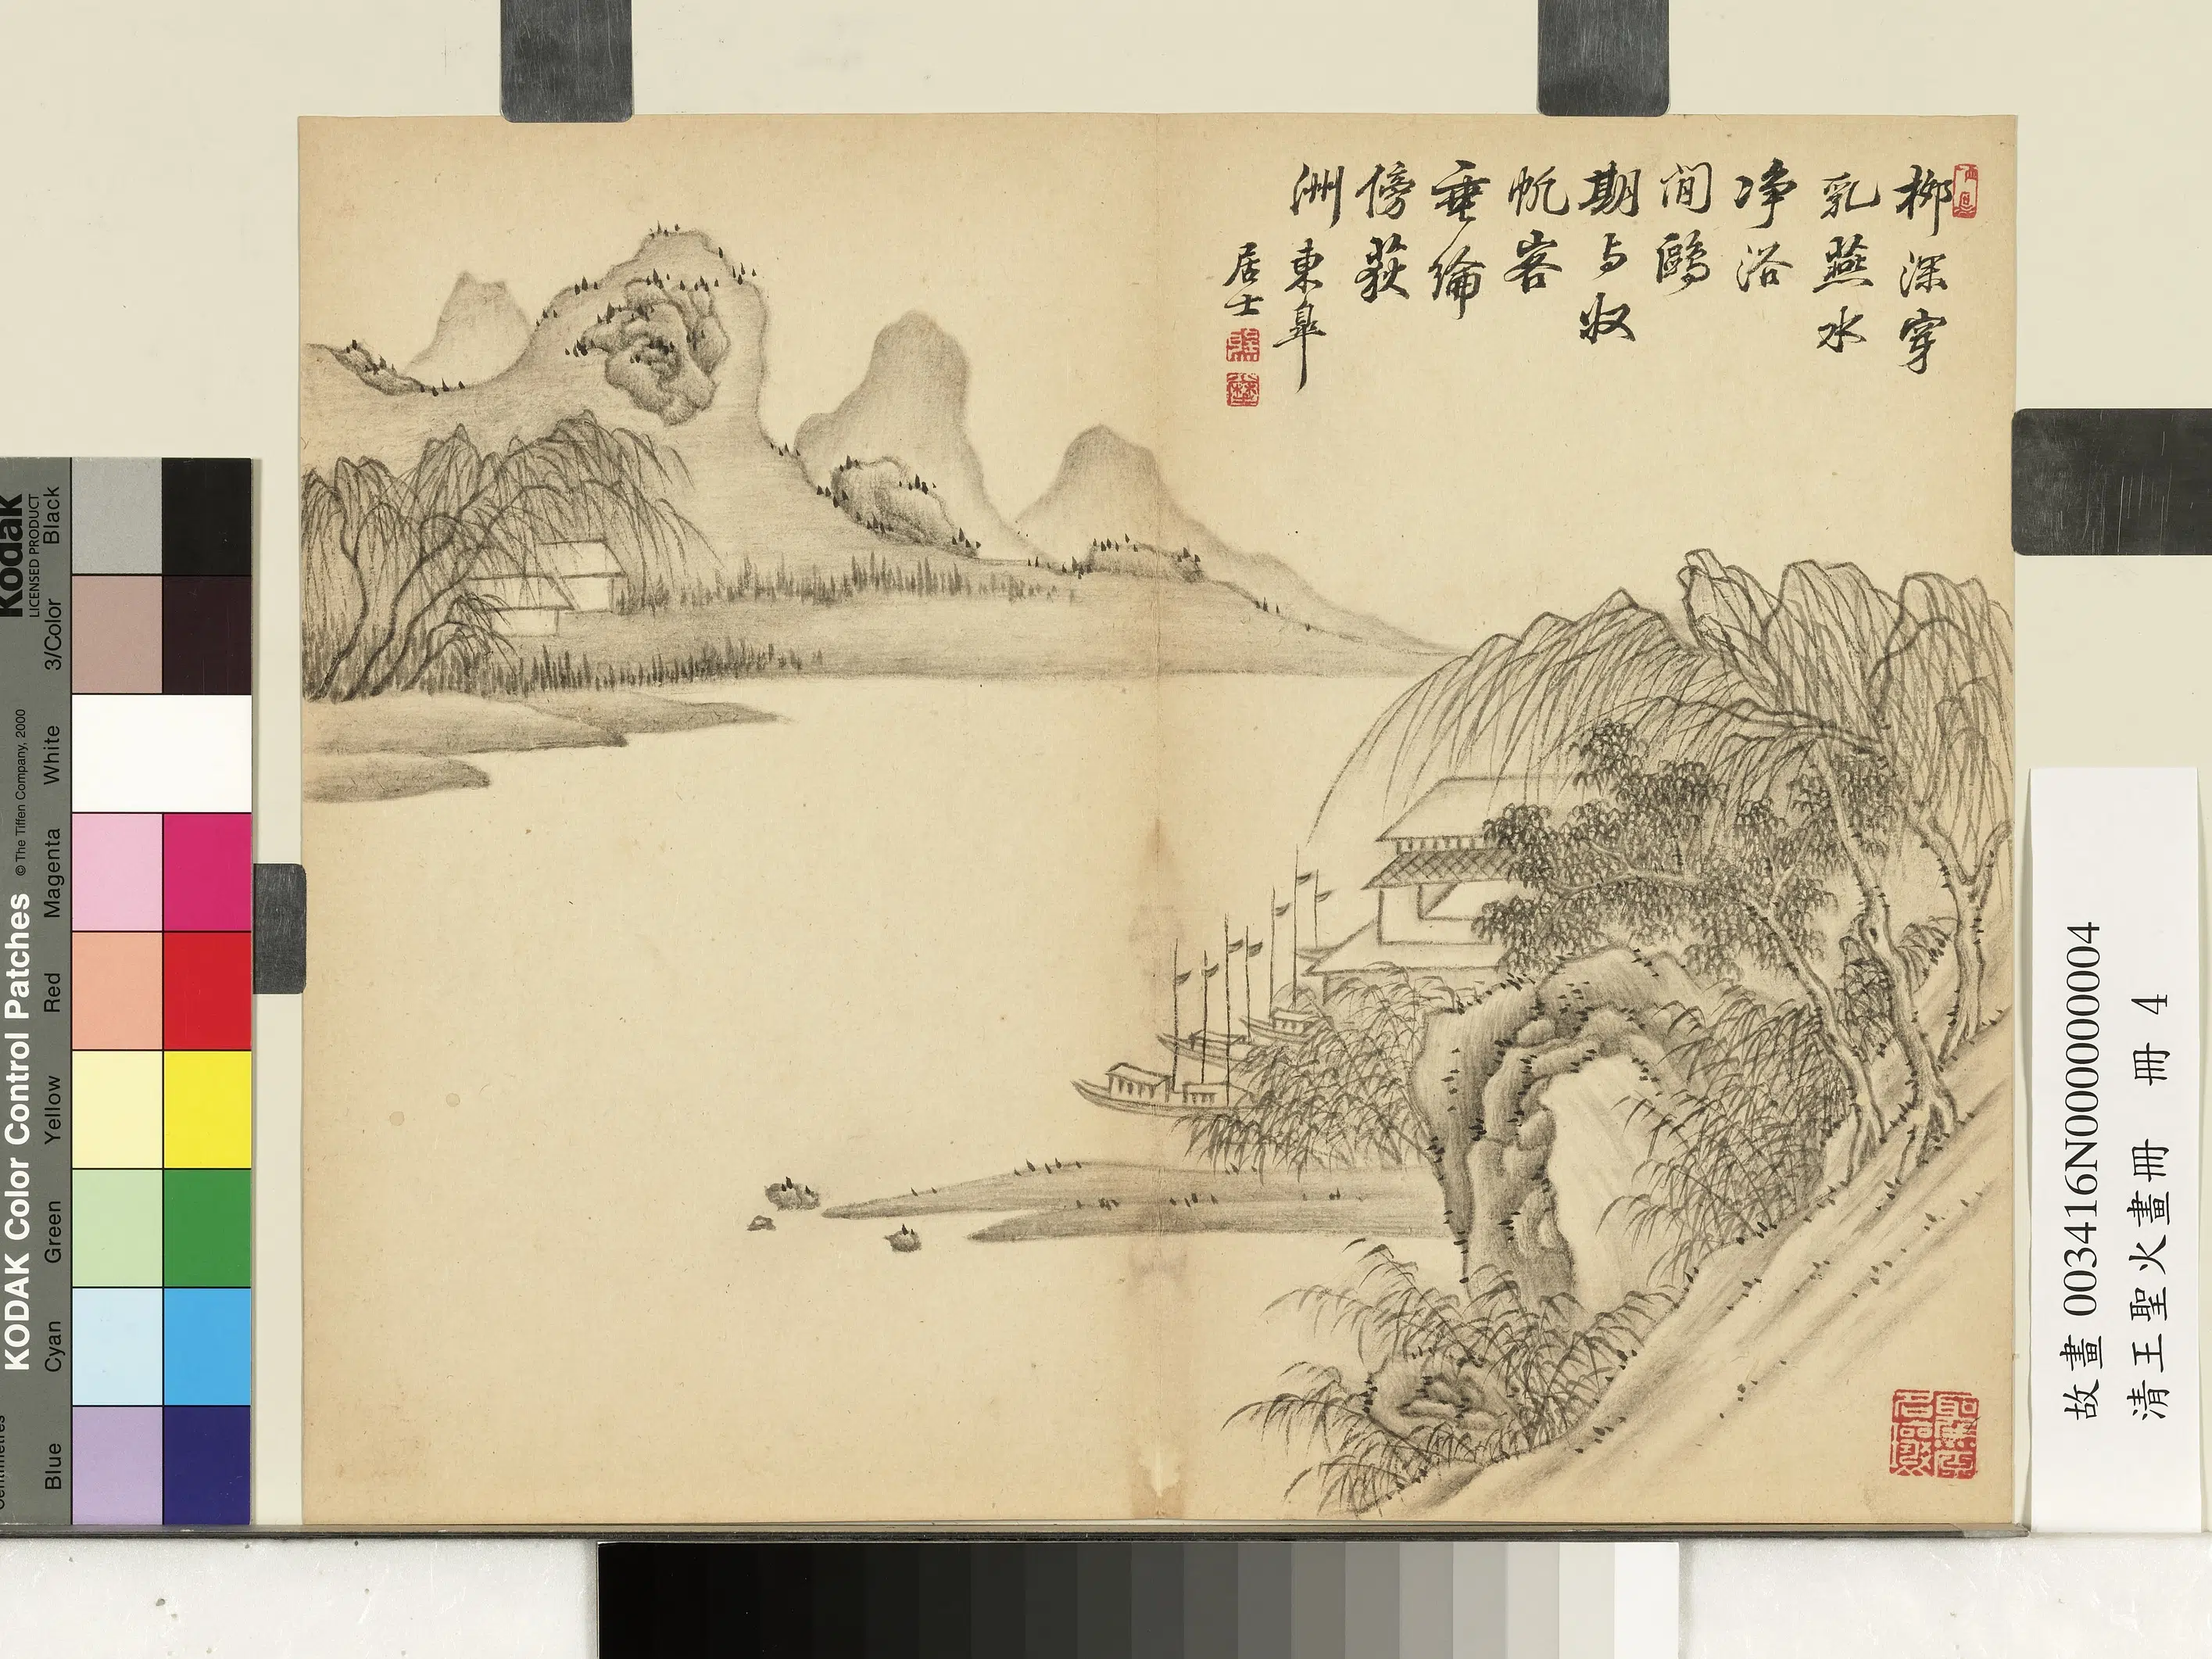 柳深穿
乳燕水
净浴
閒鷗
期与收
帆客
垂綸
傍荻
洲東皐
居士
故畫 003416N000000004
清王聖火畫冊 冊 4
KODAK Color Control Patches
© The Tiffen Company, 2000
Kodak
LICENSED PRODUCT
Blue
Cyan
Green
Yellow
Red
Magenta
White
3/Color
Black